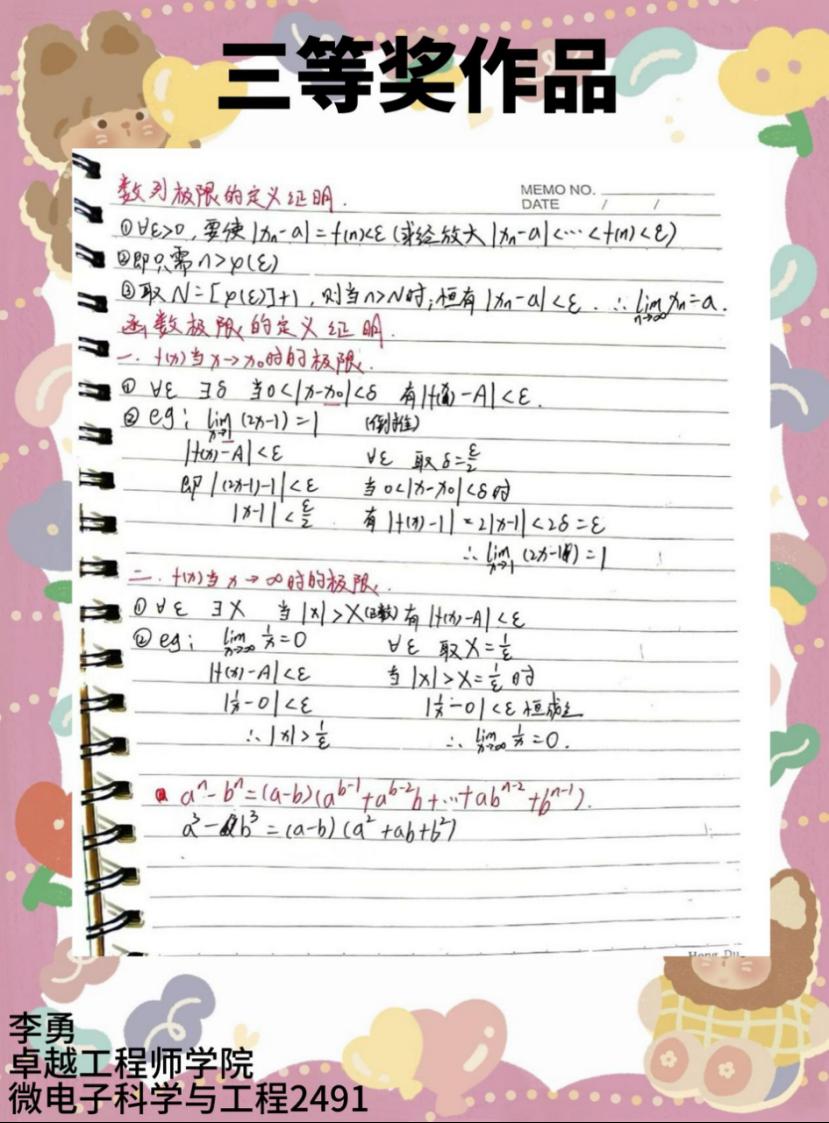 三等奖作品
数列极限的定义证明.
MEMO NO.
DATE / /
①∀ε>0,要使|xₙ-a|=f(n)<ε(或经放大|xₙ-a|<…<f(n)<ε)
②即只需n>φ(ε)
③取N=[φ(ε)]+1,则当n>N时,恒有|xₙ-a|<ε.∴lim n→∞ xₙ=a.
函数极限的定义证明.
一.f(x)当x→x₀时的极限.
①∀ε ∃δ 当0<|x-x₀|<δ 有|f(x)-A|<ε.
②eg: lim x→1 (2x-1)=1 (倒推)
|f(x)-A|<ε ∀ε 取δ=ε/2
即|(2x-1)-1|<ε 当0<|x-x₀|<δ时
|x-1|<ε/2 有|f(x)-1|=2|x-1|<2δ=ε
∴lim x→1 (2x-1)=1
二.f(x)当x→∞时的极限.
①∀ε ∃X 当|x|>X(正数)有|f(x)-A|<ε
②eg: lim x→∞ 1/x=0 ∀ε 取X=1/ε
|f(x)-A|<ε 当|x|>X=1/ε时
|1/x-0|<ε |1/x-0|<ε恒成立
∴|x|>1/ε ∴lim x→∞ 1/x=0.
aⁿ-bⁿ=(a-b)(aᵇ⁻¹+aᵇ⁻²b+…+abⁿ⁻²+bⁿ⁻¹).
a³-b³=(a-b)(a²+ab+b²)
李勇
卓越工程师学院
微电子科学与工程2491